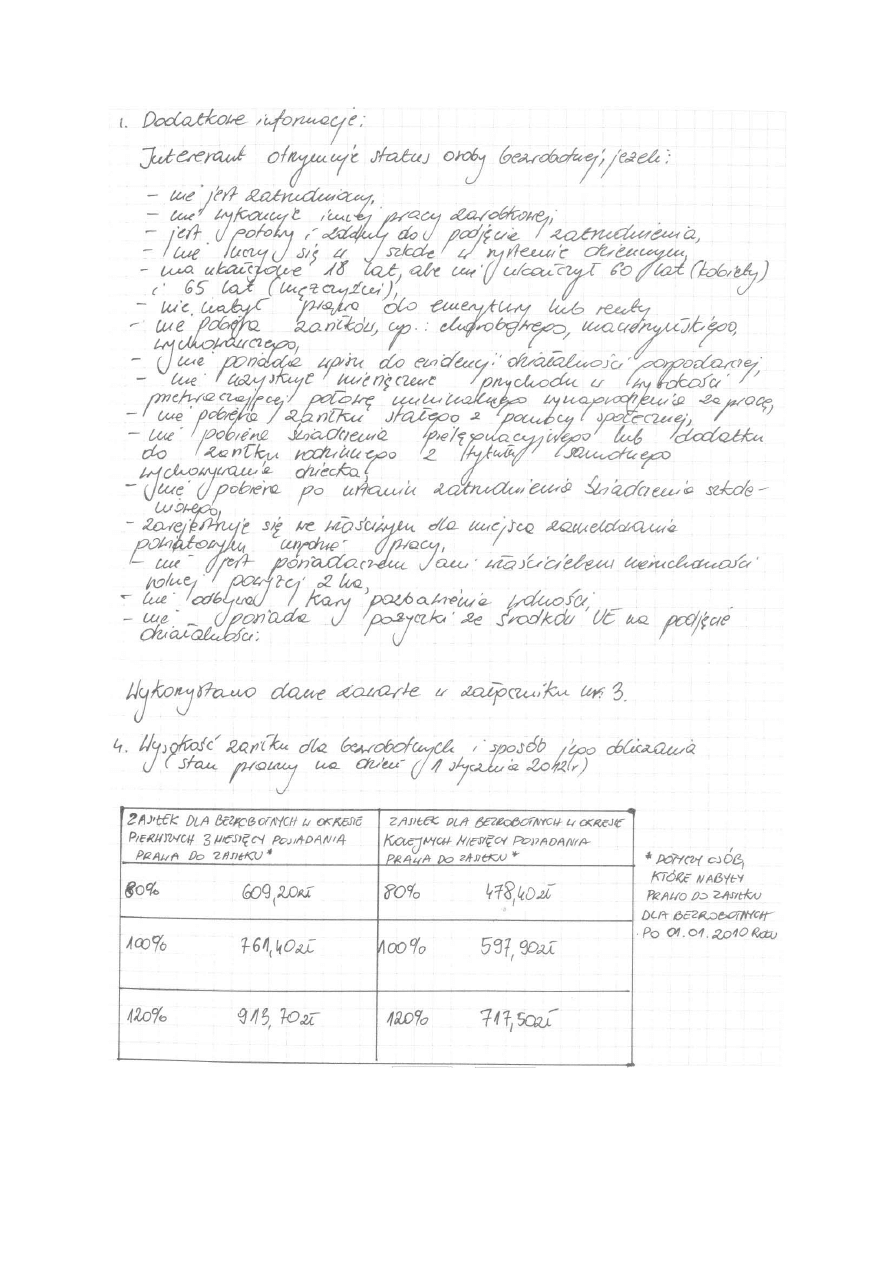 1. Dodatkowe informacje:
Interesant otrzymuje status osoby bezrobotnej, jeżeli:
- nie jest zatrudniony,
- nie wykonuje innej pracy zarobkowej,
- jest gotowy i zdolny do podjęcia zatrudnienia,
- nie uczy się w szkole w systemie dziennym,
- ma ukończone 18 lat, ale nie ukończył 60 lat (kobiety)
i 65 lat (mężczyźni),
- nie nabył prawa do emerytury lub renty
- nie pobiera zasiłków, np.: chorobowego, macierzyńskiego,
wychowawczego,
- nie posiada wpisu do ewidencji działalności gospodarczej,
- nie uzyskuje miesięcznie przychodu w wysokości
przekraczającej połowę minimalnego wynagrodzenia za pracę,
- nie pobiera zasiłku stałego z pomocy społecznej,
- nie pobiera świadczenia pielęgnacyjnego lub dodatku
do zasiłku rodzinnego z tytułu samotnego
wychowywania dziecka,
- nie pobiera po ustaniu zatrudnienia świadczenia szkole-
niowego,
- zarejestruje się we właściwym dla miejsca zameldowania
powiatowym urzędzie pracy,
- nie jest posiadaczem ani właścicielem nieruchomości
rolnej powyżej 2 ha,
- nie odbywa kary pozbawienia wolności,
- nie posiada pożyczki ze środków UE na podjęcie
działalności.
Wykorzystano dane zawarte w załączniku nr 3.
4. Wysokość zasiłku dla bezrobotnych i sposób jego obliczania
(stan prawny na dzień 1 stycznia 2012r)
ZASIŁEK DLA BEZROBOTNYCH W OKRESIE
PIERWSZYCH 3 MIESIĘCY POSIADANIA
PRAWA DO ZASIŁKU*
ZASIŁEK DLA BEZROBOTNYCH W OKRESIE
KOLEJNYCH MIESIĘCY POSIADANIA
PRAWA DO ZASIŁKU*
80% 609,20zł 80% 478,40zł
100% 761,40zł 100% 597,90zł
120% 913,70zł 120% 717,50zł
* DOTYCZY OSÓB,
KTÓRE NABYŁY
PRAWO DO ZASIŁKU
DLA BEZROBOTNYCH
PO 01.01.2010 ROKU